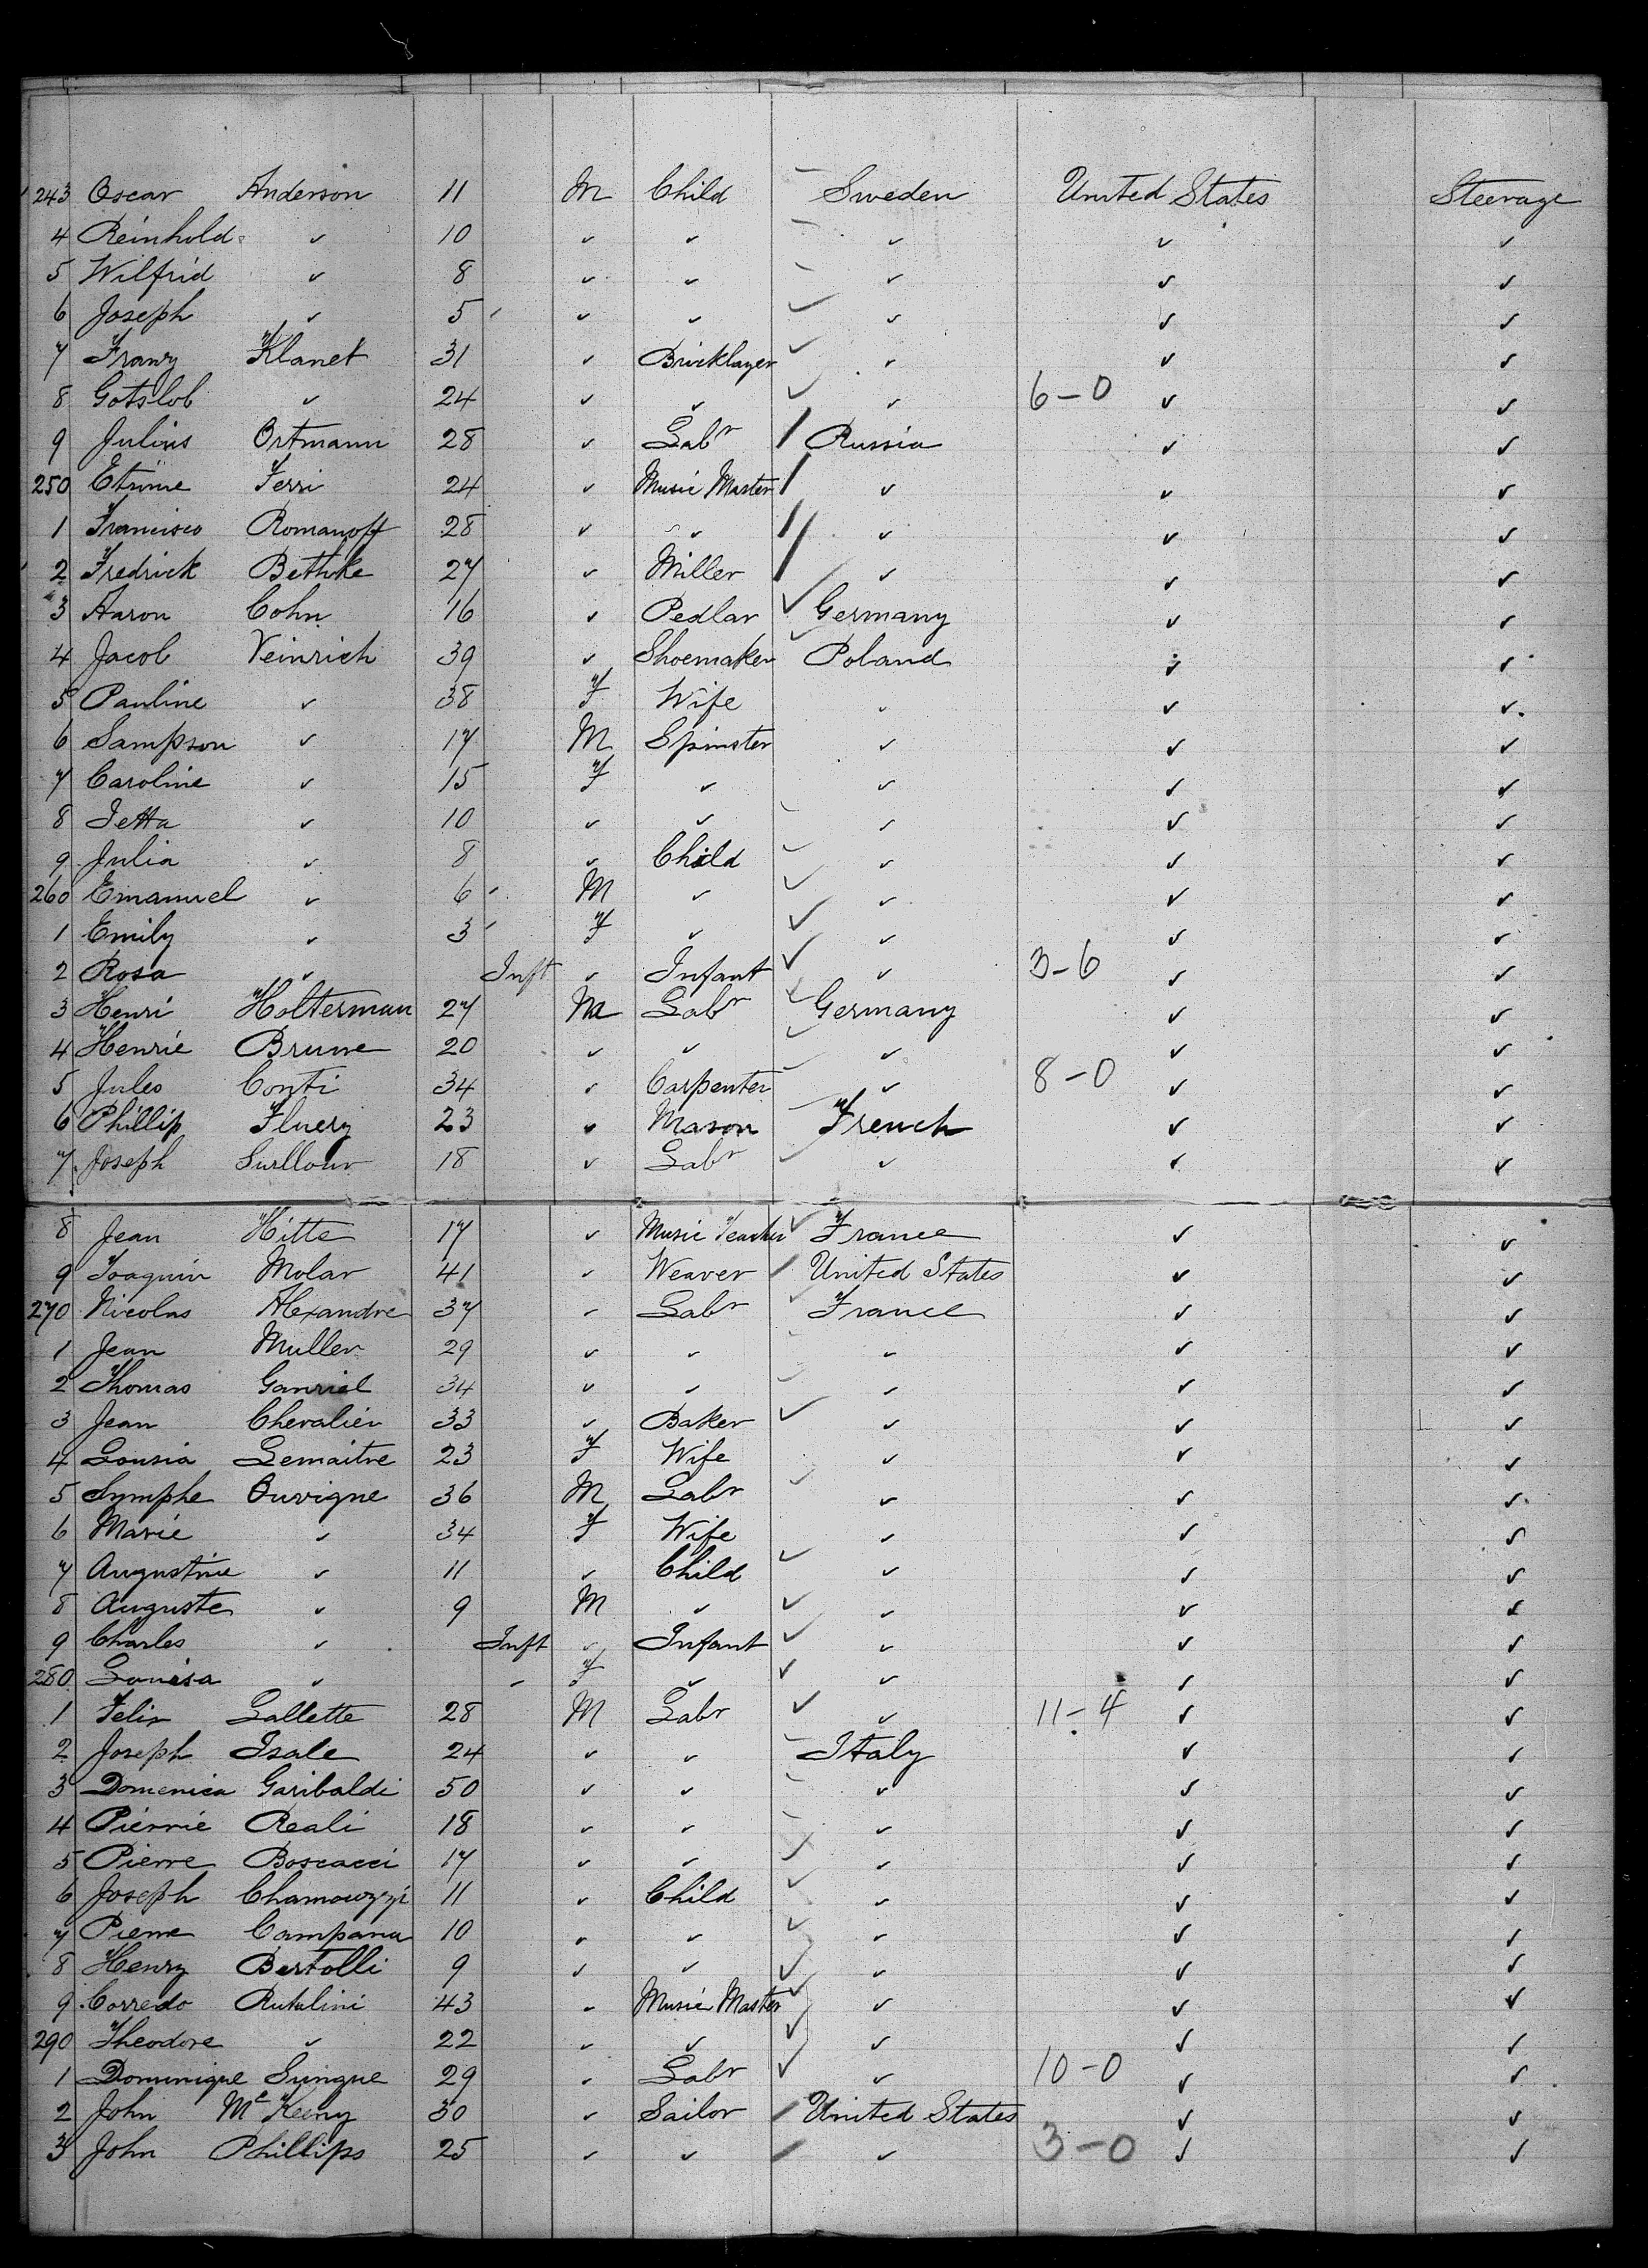 243 Oscar Anderson 11 M Child Sweden United States Steerage
4 Reinhold ✓ 10 ✓ ✓ ✓ ✓ ✓
5 Wilfrid ✓ 8 ✓ ✓ ✓ ✓ ✓
6 Joseph ✓ 5 ✓ ✓ ✓ ✓ ✓
7 Franz Klanet 31 ✓ Bricklayer ✓ ✓ ✓
8 Gotslob ✓ 24 ✓ ✓ ✓ 6-0 ✓ ✓
9 Julius Ortmann 28 ✓ Labr Russia ✓ ✓
250 Etrime Ferri 24 ✓ Music Master ✓ ✓ ✓
1 Francisco Romanoff 28 ✓ ✓ ✓ ✓ ✓
2 Fredrick Bethke 27 ✓ Miller ✓ ✓ ✓
3 Aaron Cohn 16 ✓ Pedlar Germany ✓ ✓
4 Jacob Veinrich 39 ✓ Shoemaker Poland ✓ ✓
5 Pauline ✓ 38 F Wife ✓ ✓ ✓
6 Sampson ✓ 17 M Spinster ✓ ✓ ✓
7 Caroline ✓ 15 F ✓ ✓ ✓ ✓
8 Jetta ✓ 10 ✓ ✓ ✓ ✓ ✓
9 Julia ✓ 8 ✓ Child ✓ ✓ ✓
260 Emanuel ✓ 6 M ✓ ✓ ✓ ✓
1 Emily ✓ 3 F ✓ ✓ ✓ ✓
2 Rosa ✓ Inft ✓ Infant ✓ 3-6 ✓ ✓
3 Henri Holterman 27 M Labr Germany ✓ ✓
4 Henrie Brune 20 ✓ ✓ ✓ ✓ ✓
5 Jules Conti 34 ✓ Carpenter ✓ 8-0 ✓ ✓
6 Phillip Fluery 23 ✓ Mason French ✓ ✓
7 Joseph 18 ✓ Labr ✓ ✓ ✓
8 Jean Hitte 17 ✓ Music Teacher France ✓ ✓
9 Joaquin Molar 41 ✓ Weaver United States ✓ ✓
270 Nicolas Alexandre 37 ✓ Labr France ✓ ✓
1 Jean Muller 29 ✓ ✓ ✓ ✓ ✓
2 Thomas Ganriel 34 ✓ ✓ ✓ ✓ ✓
3 Jean Chevalier 33 ✓ Baker ✓ ✓ ✓
4 Lousia Lemaitre 23 F Wife ✓ ✓ ✓
5 Symphe Ouvigne 36 M Labr ✓ ✓ ✓
6 Marie ✓ 34 F Wife ✓ ✓ ✓
7 Augustine ✓ 11 ✓ Child ✓ ✓ ✓
8 Auguste ✓ 9 M ✓ ✓ ✓ ✓
9 Charles ✓ Inft ✓ Infant ✓ ✓ ✓
280 Louisa ✓ - F ✓ ✓ ✓ ✓
1 Felix Lallette 28 M Labr ✓ 11-4 ✓ ✓
2 Joseph Isale 24 ✓ ✓ Italy ✓ ✓
3 Domenica Garibaldi 50 ✓ ✓ ✓ ✓ ✓
4 Pierrie Reali 18 ✓ ✓ ✓ ✓ ✓
5 Pierre Boscacci 17 ✓ ✓ ✓ ✓ ✓
6 Joseph Chamowzyi 11 ✓ Child ✓ ✓ ✓
7 Pierre Campana 10 ✓ ✓ ✓ ✓ ✓
8 Henry Bertolli 9 ✓ ✓ ✓ ✓ ✓
9 Corredo Rutulini 43 ✓ Music Master ✓ ✓ ✓
290 Theodore ✓ 22 ✓ ✓ ✓ ✓ ✓
1 Dominique Sungue 29 ✓ Labr ✓ 10-0 ✓ ✓
2 John McKeeny 30 ✓ Sailor United States ✓ ✓
3 John Phillips 25 ✓ ✓ ✓ 3-0 ✓ ✓